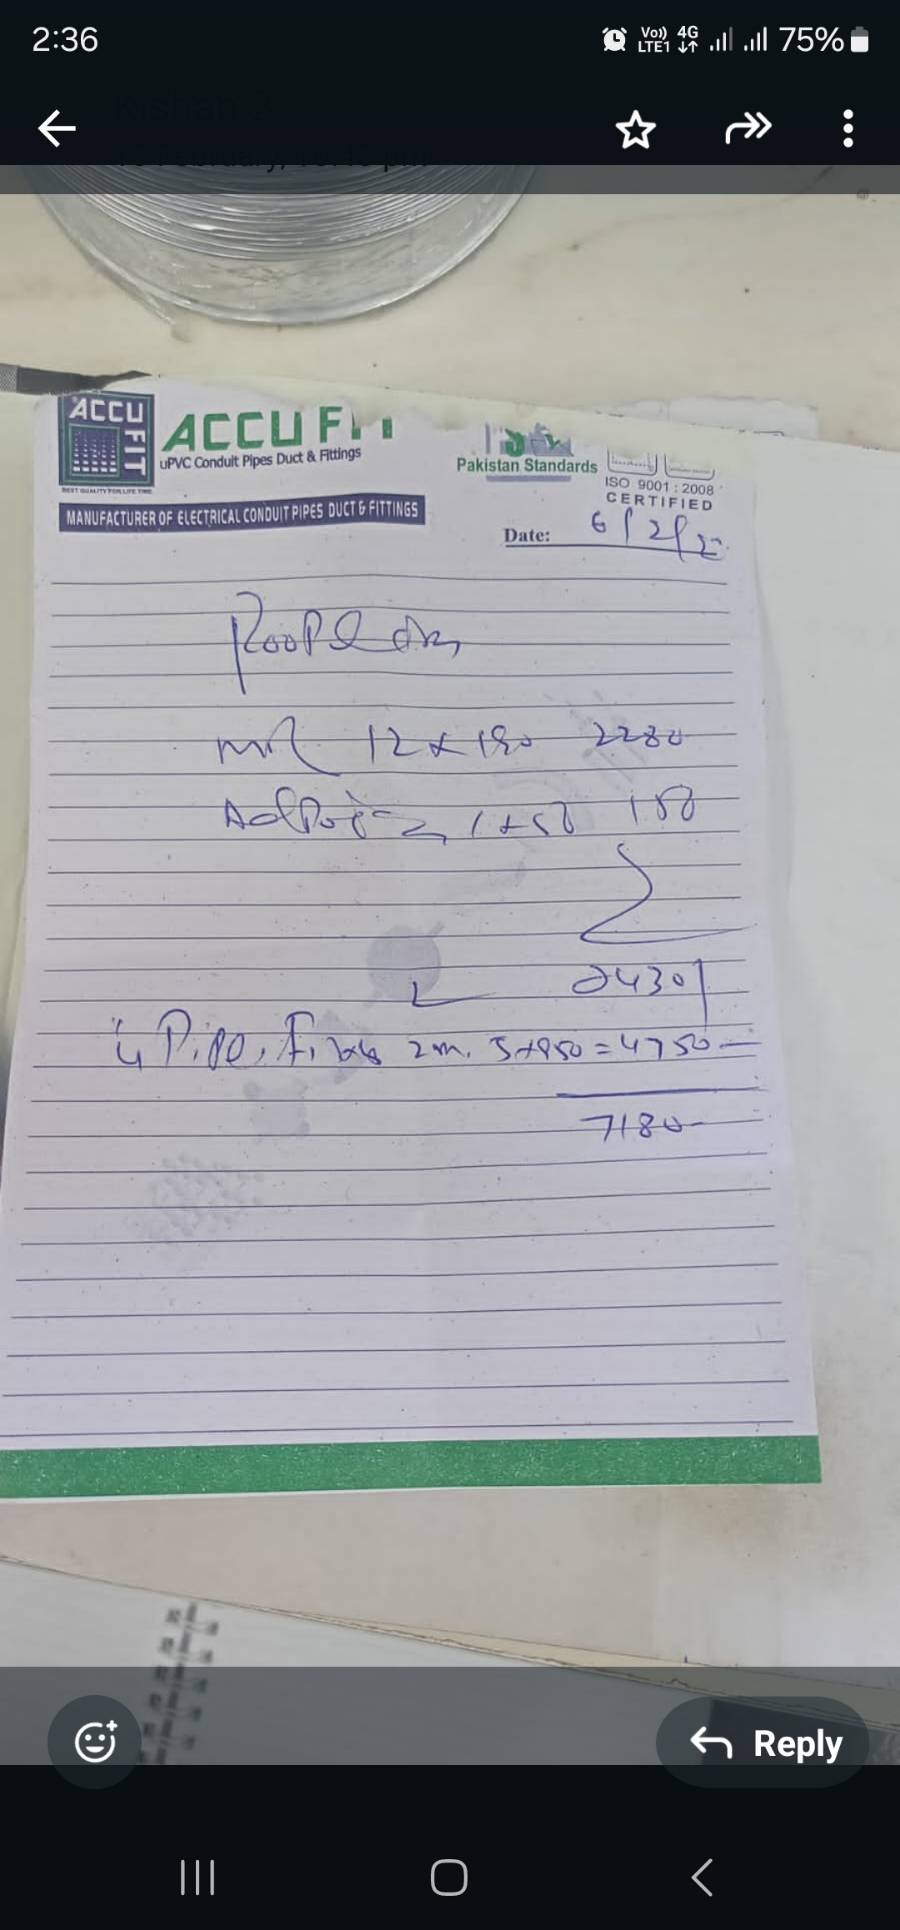 2:36
Vo)) LTE1 4G 75%
ACCU FIT
ACCU FIT
uPVC Conduit Pipes Duct & Fittings
BEST QUALITY FOR LIFE TIME
MANUFACTURER OF ELECTRICAL CONDUIT PIPES DUCT & FITTINGS
Pakistan Standards
ISO 9001 : 2008
CERTIFIED
Date: 6/2/2
12 x 190 2280
150
2430/
4" Pipe, 2m. 5x950 = 4750
7180
Reply